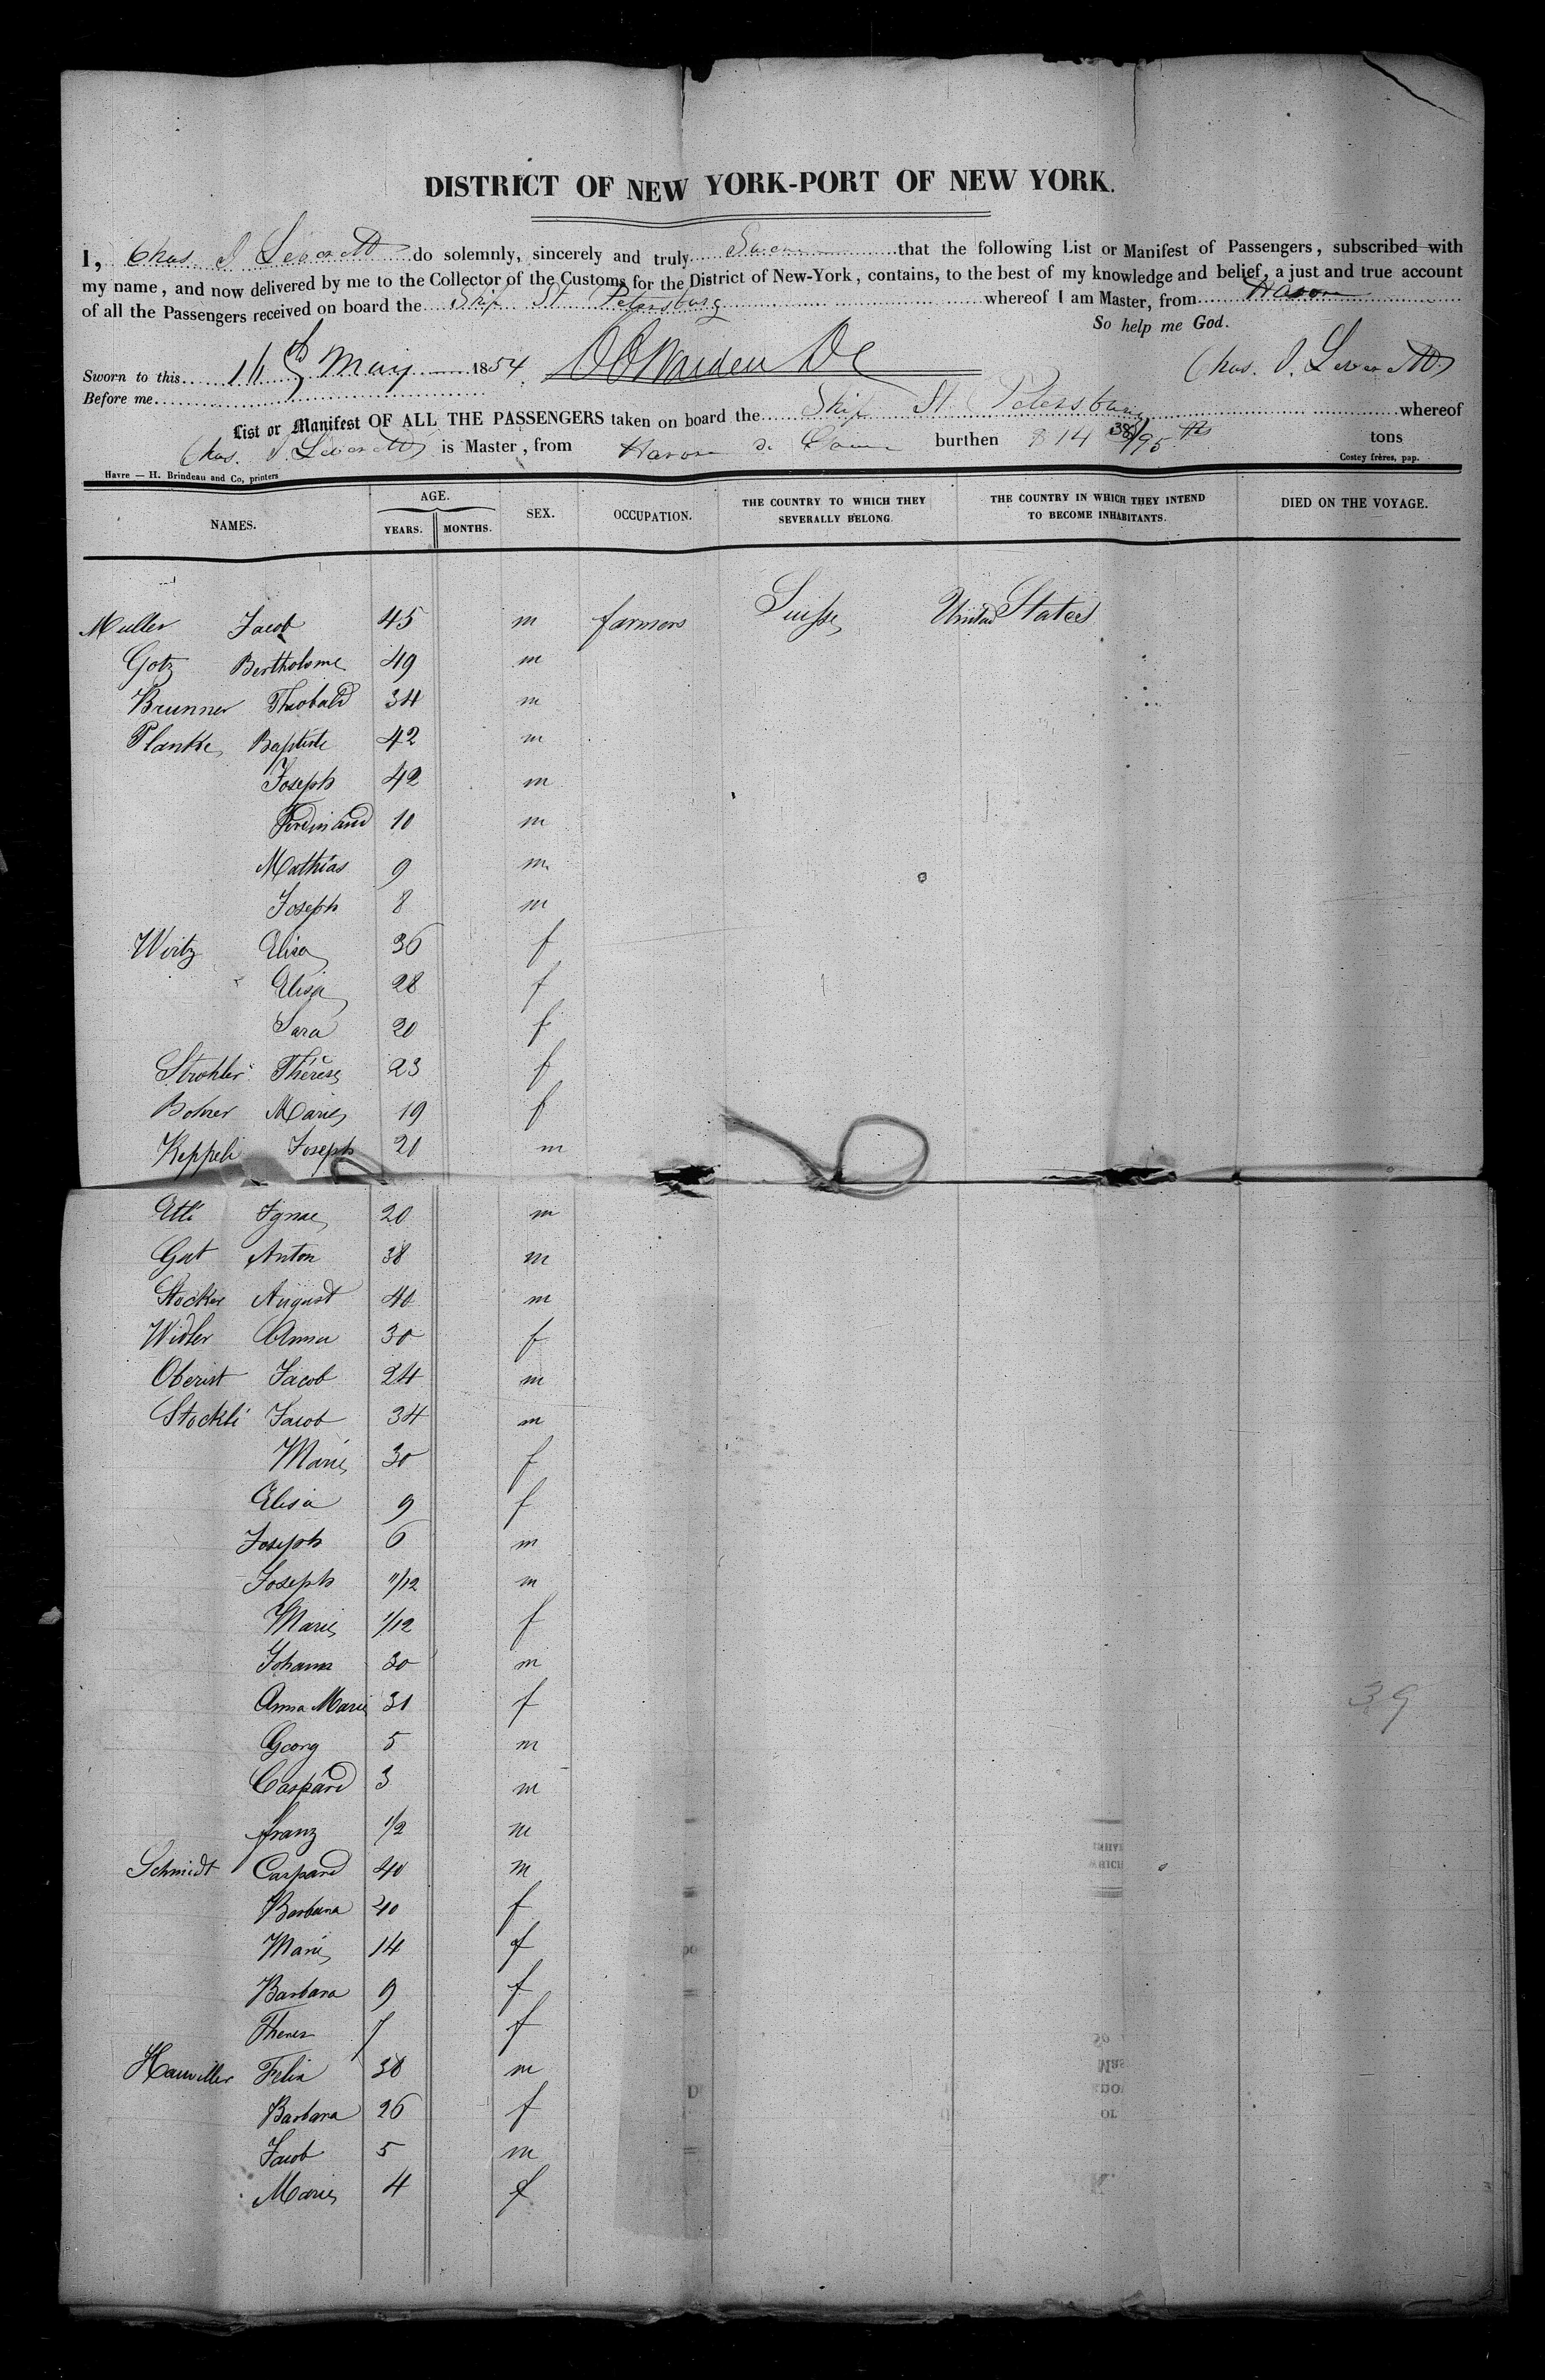 DISTRICT OF NEW YORK-PORT OF NEW YORK.
I, Chas. I Leverett do solemnly, sincerely and truly Swear that the following List or Manifest of Passengers, subscribed with
my name, and now delivered by me to the Collector of the Customs for the District of New-York, contains, to the best of my knowledge and belief, a just and true account
of all the Passengers received on board the Ship St Petersburg whereof I am Master, from Havre
So help me God.
Sworn to this 16th May 1854. Chas. I. Leverett
Before me
List or Manifest OF ALL THE PASSENGERS taken on board the Ship St. Petersburg whereof
Chas. I. Leverett is Master, from Havre burthen 814 38/95 ths tons
Havre — H. Brindeau and Co, printers
Costey frères, pap.
NAMES. AGE. YEARS. MONTHS. SEX. OCCUPATION. THE COUNTRY TO WHICH THEY SEVERALLY BELONG. THE COUNTRY IN WHICH THEY INTEND TO BECOME INHABITANTS. DIED ON THE VOYAGE.
Muller Jacob 45 m farmers Suisse United States
Gotz Bertholome 49 m
Brunner Theobald 34 m
Planke Baptiste 42 m
Joseph 42 m
Ferdinand 10 m
Mathias 9 m
Joseph 8 m
Wirtz Elisa 36 f
Elisa 28 f
Sara 20 f
Strohler Thérèse 23 f
Bohrer Marie 19 f
Keppeli Joseph 21 m
Etti Ignac 20 m
Gut Anton 38 m
Stocker August 40 m
Widler Anna 30 f
Oberist Jacob 24 m
Stockli Jacob 34 m
Marie 30 f
Elisa 9 f
Joseph 6 m
Joseph 11/12 m
Marie 1/12 f
Johann 30 m
Anna Marie 31 f
39
Georg 5 m
Caspard 3 m
franz 1/2 m
Schmidt Caspard 40 m
Barbara 40 f
Marie 14 f
Barbara 9 f
Theres 7 f
Hauviller Felix 38 m
Barbara 26 f
Jacob 5 m
Marie 4 f